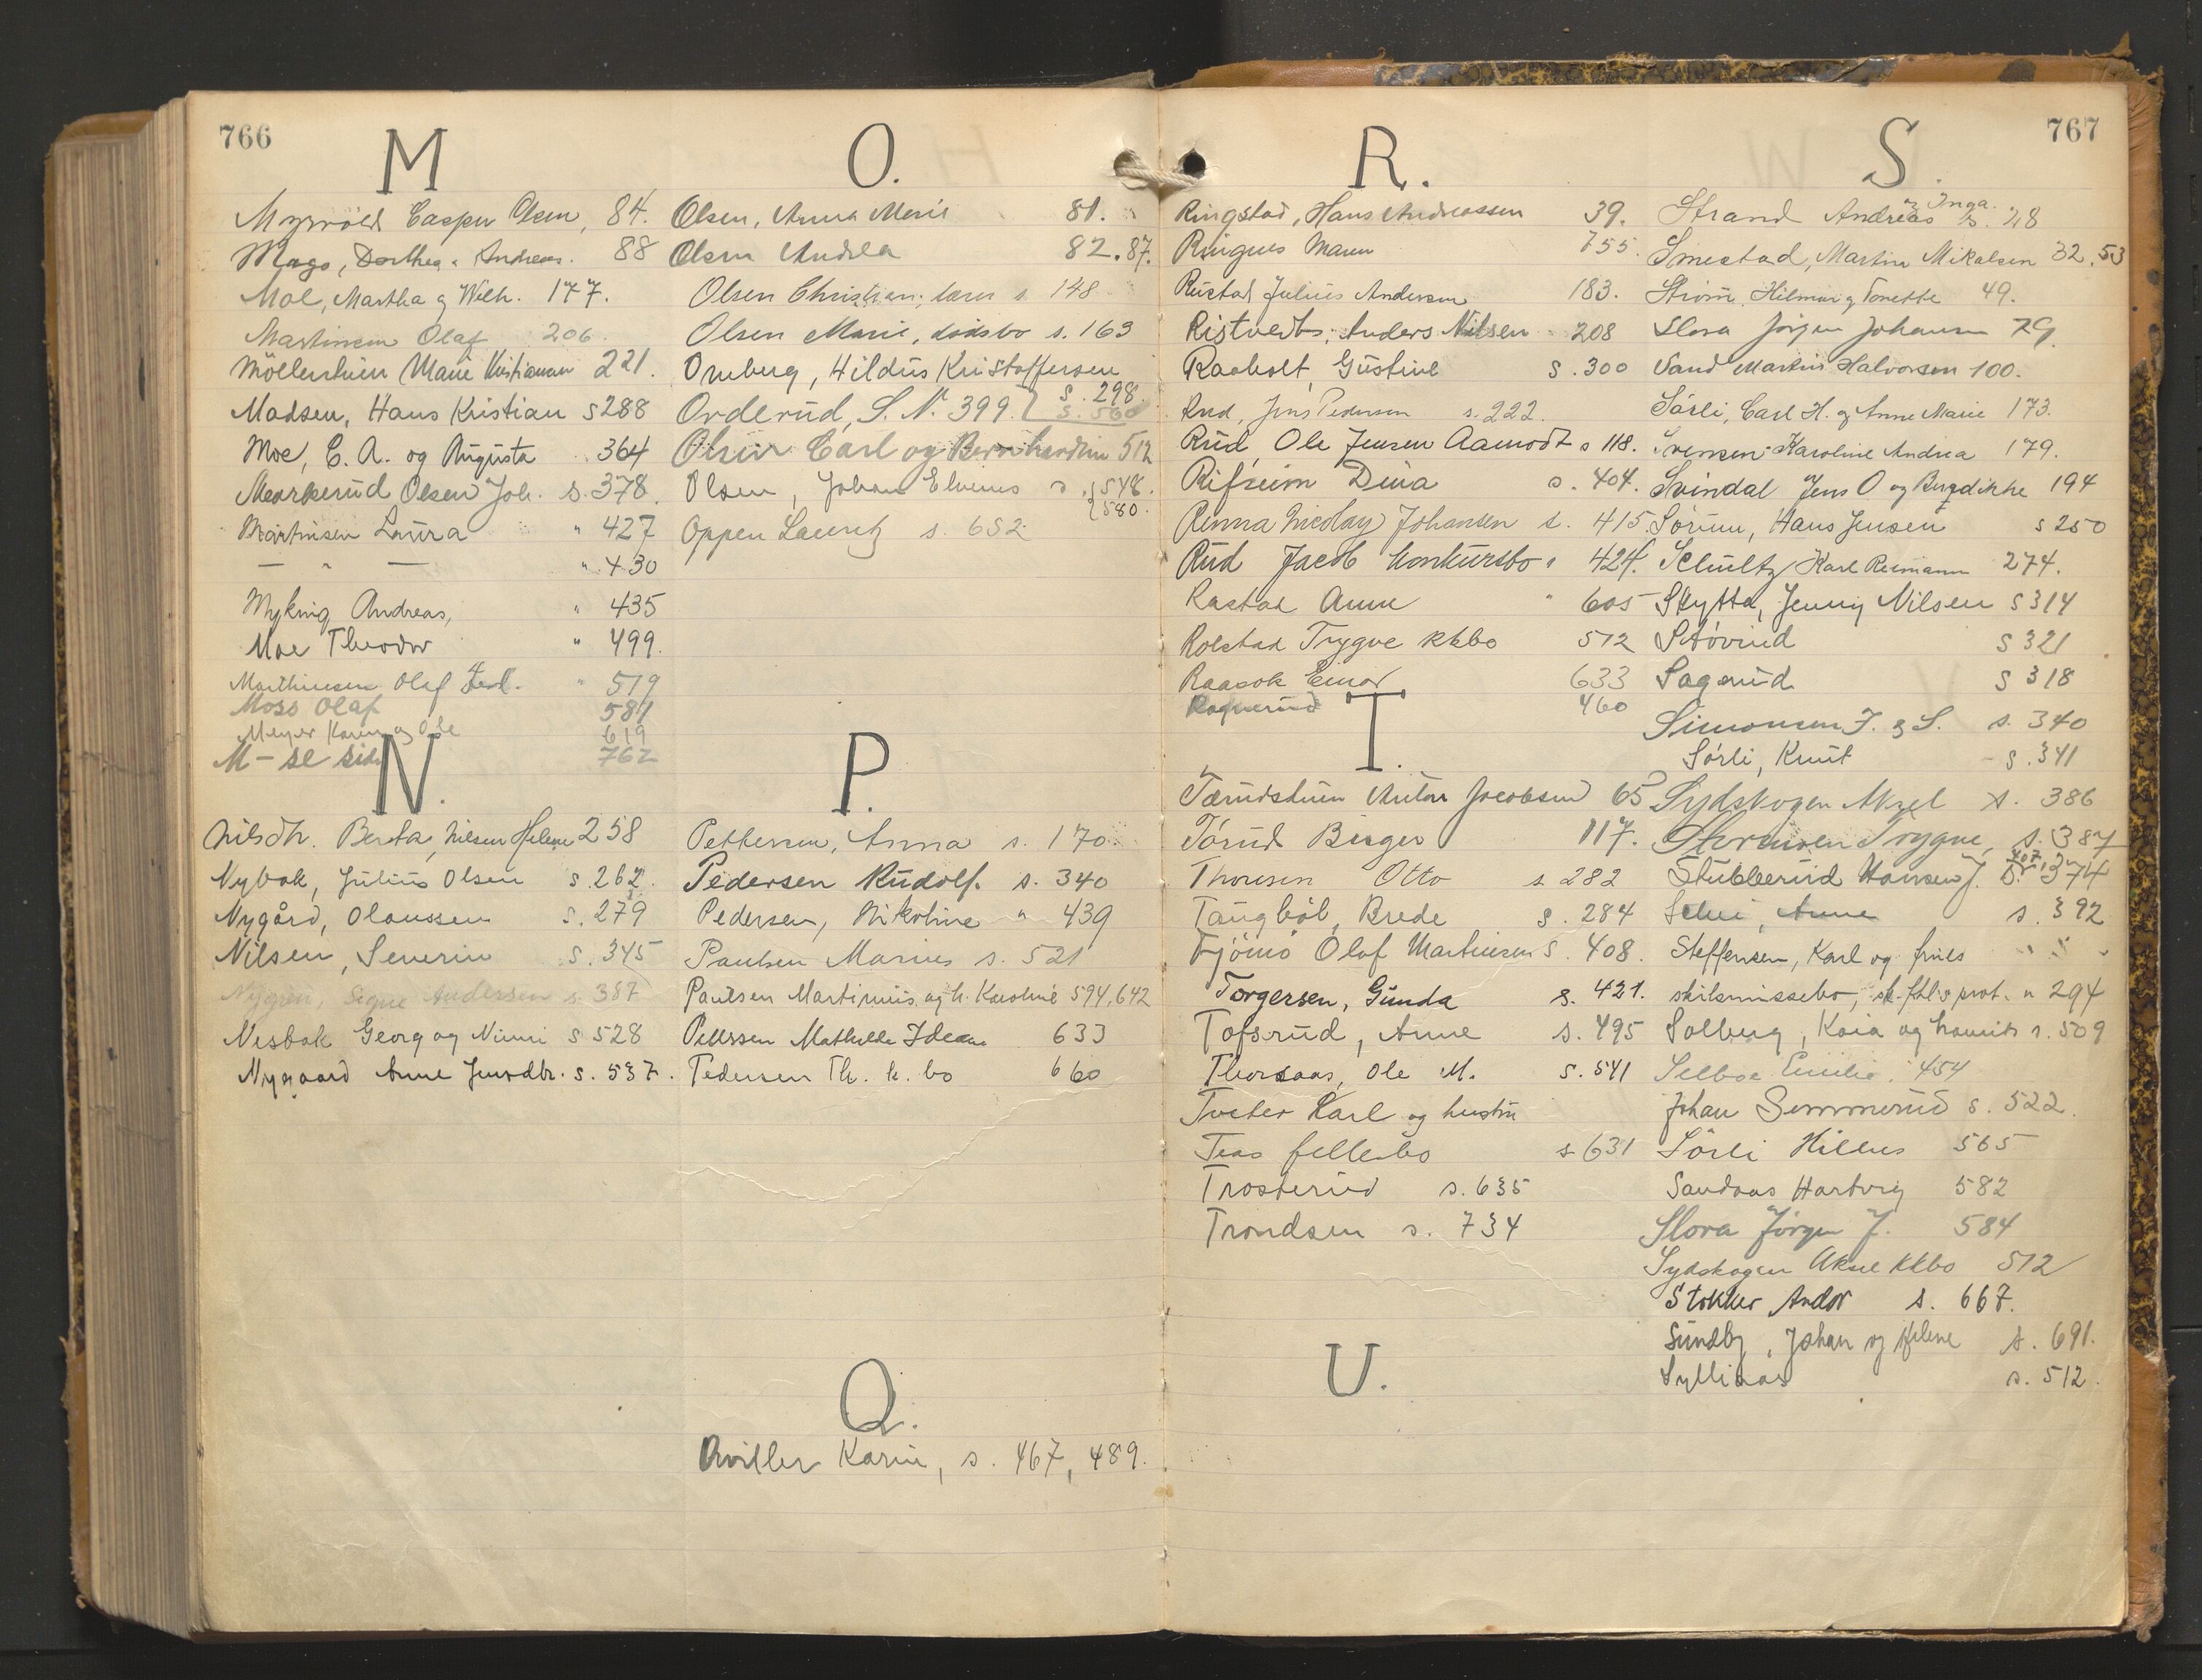 766
M
Myrvold Casper Olsen, 84.
Mago, Dorthea & Andreas. 88
Moe, Martha og Wilh. 177.
Martinsen Olaf 206.
Marie Kristiansen 221.
Madsen, Hans Kristian s 288
Moe, C. A. og Augusta 364
Markerud Olsen Joh. s. 378.
Martinsen Laura " 427
— " — " 430
Myking Andreas, " 435
Moe Theodor " 499.
Marthinsen Olaf Ferd. " 519
Moss Olaf 581
Meyer Karen og Ole 619
M - se side 762
N.
Nilsdtr. Berta, Nilsen Helene 258
Nybak, Julius Olsen s. 262.
Nygård, Olaussen s. 279
Nilsen, Severin s. 345
Nygren, Signe Andersen s. 387
Nesbak Georg og Ninni s 528
Nygaard Anne Jensdtr. s. 537.
O.
Olsen, Anna Marie 81.
Olsen Andrea 82. 87.
Olsen Christian, s. 148
Olsen Marie, dødsbo s. 163
Omberg, Hildus Kristoffersen
s. 298.
Orderud, S. N. 399. s. 560
Olsen Carl og Bernhardine 512
Olsen, Johan Elvenius s. 548.
580.
Oppen Lauritz s. 652
P.
Pettersen, Anna s. 170.
Pedersen Rudolf. s. 340
Pedersen, Nikoline " 439
Paulsen Marius s. 521
Paulsen Martinius og h. Karoline 594, 642
Petterssen Mathilde 633
Pedersen Th. k. bo 660
Q.
Qviller Karin, s. 467, 489.
767
R.
Ringstad, Hans Andreassen 39.
Ringnes Maren 755.
Rustad Julius Andersen 183.
Ristvedt, Anders Nilsen 208
Raaholt, Gustine s. 300
Rud, Jens Pedersen s. 222.
Rud, Ole Jensen Aamodt s 118.
Rifseim Dina s. 404.
Renna Nicolay Johansen s. 415
Rud Jacob konkursbo " 424.
Rastad Anne " 605
Rolstad Trygve kkbo 512
Raasok Einar 633
Ragnerud 460
T.
Tærudstuen Anton Jacobsen 65
Tørud Birger 117.
Thoresen Otto s. 282
Taugbøl, Brede s. 284
Tjømø Olaf Martinsen s. 408.
Torgersen, Gunda s. 421.
Tofsrud, Anne s. 495
Thorsaas, Ole M. s. 541
Tveter Karl og hustru
Teas fellesbo s 631
Trosterud s. 635
Trondsen s. 734
U.
S.
og Inga.
Strand Andreas s. 28
Smestad, Martin Mikalsen 32. 53
Strøm, Hilmar og Tonette 49.
Slora Jørgen Johansen 79.
Sand Martin Halvorsen 100.
Sørli, Carl H. og Anne Marie 173.
Svensen Karoline Andrea 179.
Svindal Jens O og Bergdikke 194
Sørum, Hans Jensen s 250
Schultz Karl Reimann 274.
Skytta, Jenny Nilsen s 314
Støvind s 321
Sagerud s 318
Simonsen J. & S. s. 340
Sørli, Knut s. 341
Sydskogen Aksel s. 386
Trygve, s. 387
407
Stubberud Hansen J. s. 374
Anne s. 392
Steffensen, Karl og frues
skilsmissebo, sk.ftl.s prot. " 294
Solberg, Kaia og Laurits s. 509
Selboe Emilie 454
Johan Semmerud s. 522.
Sørli Hilles 565
Sandaas Hartvig 582
Slora Jørgen J. 584
Sydskogen Aksel kkbo 512
Stokker Andor s. 667.
Sundby, Johan og Helene s. 691.
Syllinaas s. 512.